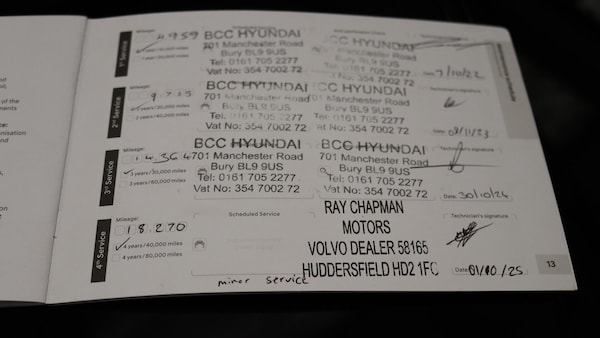 Mileage:
4959
1st Service
BCC HYUNDAI
701 Manchester Road
Bury BL9 9US
Tel: 0161 705 2277
Vat No: 354 7002 72
BCC HYUNDAI
701 Manchester Road
Bury BL9 9US
Tel: 0161 705 2277
Vat No: 354 7002 72
7/10/22
Mileage:
2nd Service
BCC HYUNDAI
701 Manchester Road
Bury BL9 9US
Tel: 0161 705 2277
Vat No: 354 7002 72
CC HYUNDAI
Manchester Road
Bury BL9 9US
Tel: 0161 705 2277
Vat No: 354 7002 72
Technician's signature
08/11/23
Mileage:
14364
3rd Service
3 years/60,000 miles
BCC HYUNDAI
701 Manchester Road
Bury BL9 9US
Tel: 0161 705 2277
Vat No: 354 7002 72
BCC HYUNDAI
701 Manchester Road
Bury BL9 9US
Tel: 0161 705 2277
Vat No: 354 7002 72
Technician's signature
Date: 30/10/24
Mileage:
18270
4th Service
4 years/40,000 miles
4 years/80,000 miles
Scheduled Service
minor service
RAY CHAPMAN
MOTORS
VOLVO DEALER 58165
HUDDERSFIELD HD2 1FC
Technician's signature
Date: 01/10/25
13